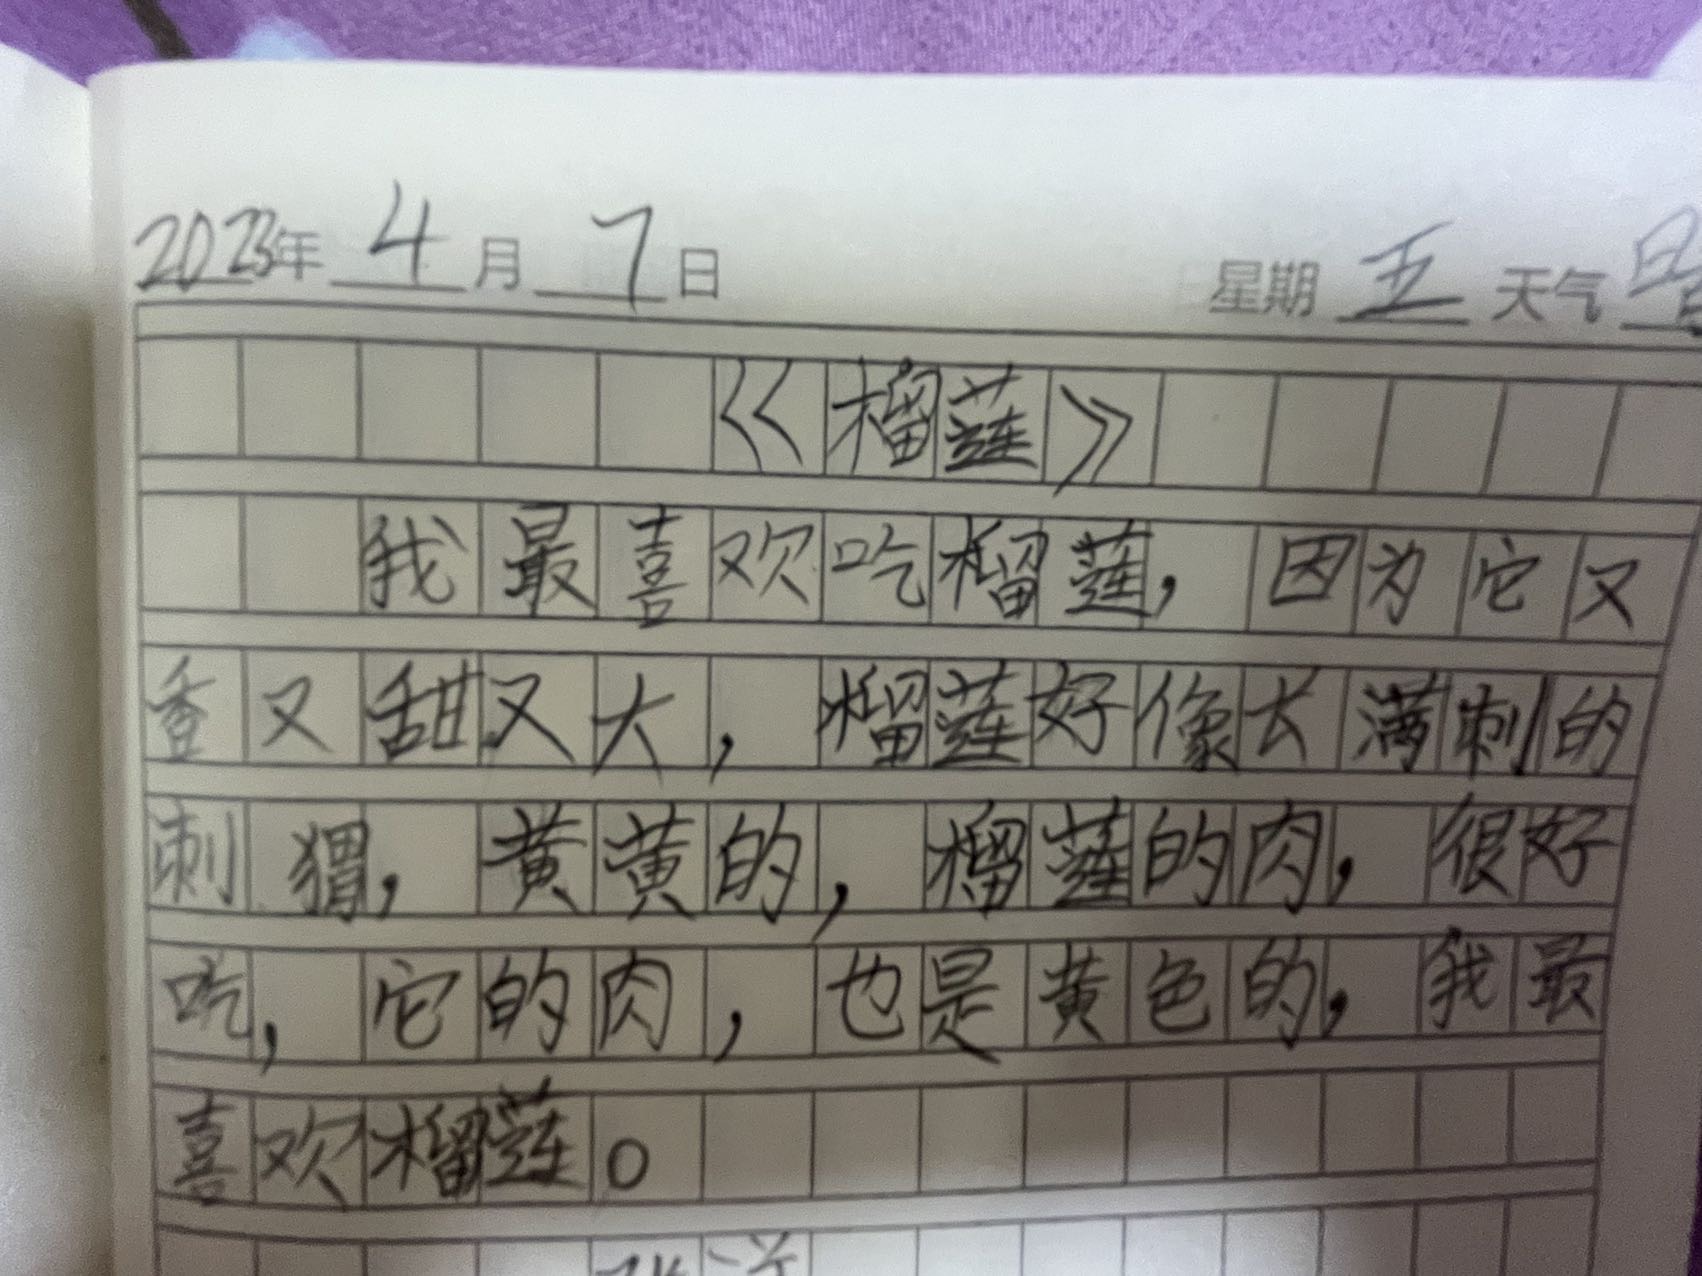 2023年 4 月 7 日 星期 五 天气 晴
《榴莲》
我最喜欢吃榴莲，因为它又
香又甜又大，榴莲好像长满刺的
刺猬，黄黄的，榴莲的肉，很好
吃，它的肉，也是黄色的，我最
喜欢榴莲。